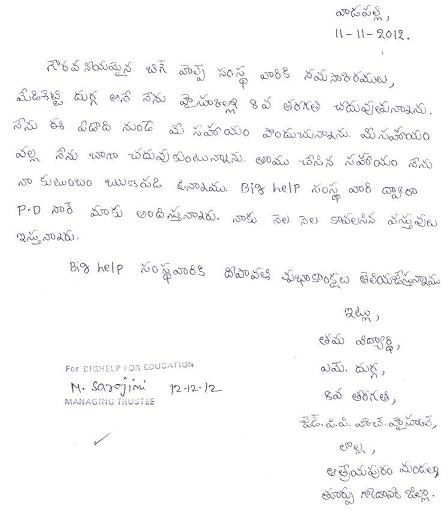 వాడపల్లి,
11-11-2012.
గౌరవనీయమైన బిగ్ హెల్ప్ సంస్థ వారికి నమస్కారములు,
మేడిశెట్టి దుర్గ అనే నేను హైస్కూల్లో 8వ తరగతి చదువుతున్నాను.
నేను ఈ ఏడాది నుండి మీ సహాయం పొందుచున్నాను. మీ సహాయం
వల్ల నేను బాగా చదువుకుంటున్నాను. తాము చేసిన సహాయం నేను
నా కుటుంబం ఋణపడి ఉన్నాము. Big help సంస్థ వారి ద్వారా
P.D సారే మాకు అందిస్తున్నారు. నాకు నెల నెల కావలసిన వస్తువులు
ఇస్తున్నారు.
Big help సంస్థవారికి దీపావళి శుభాకాంక్షలు తెలియజేస్తున్నాను
ఇట్లు,
తమ విద్యార్థి,
ఎమ్. దుర్గ,
8వ తరగతి,
జెడ్.పి.పి.హెచ్.హైస్కూల్,
లొల్ల,
ఆత్రేయపురం మండలం
తూర్పు గోదావరి జిల్లా.
For BIGHELP FOR EDUCATION
M. Sarojini 12-12-12
MANAGING TRUSTEE